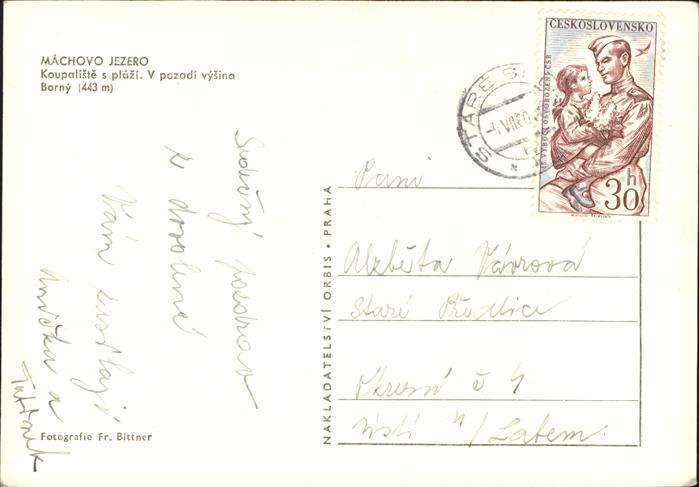 MÁCHOVO JEZERO
Koupaliště s pláží. V pozadí výšina
Borný (443 m)
Srdečný pozdrav
z dovolené
Vám zasílají
a
Fotografie Fr. Bittner
NAKLADATELSTVÍ ORBIS • PRAHA
ČESKOSLOVENSKO
30 h
STARÉ S
Paní
Alžběta Vávrová
Staré Předlice
Okružní č 4
Ústí n/Labem